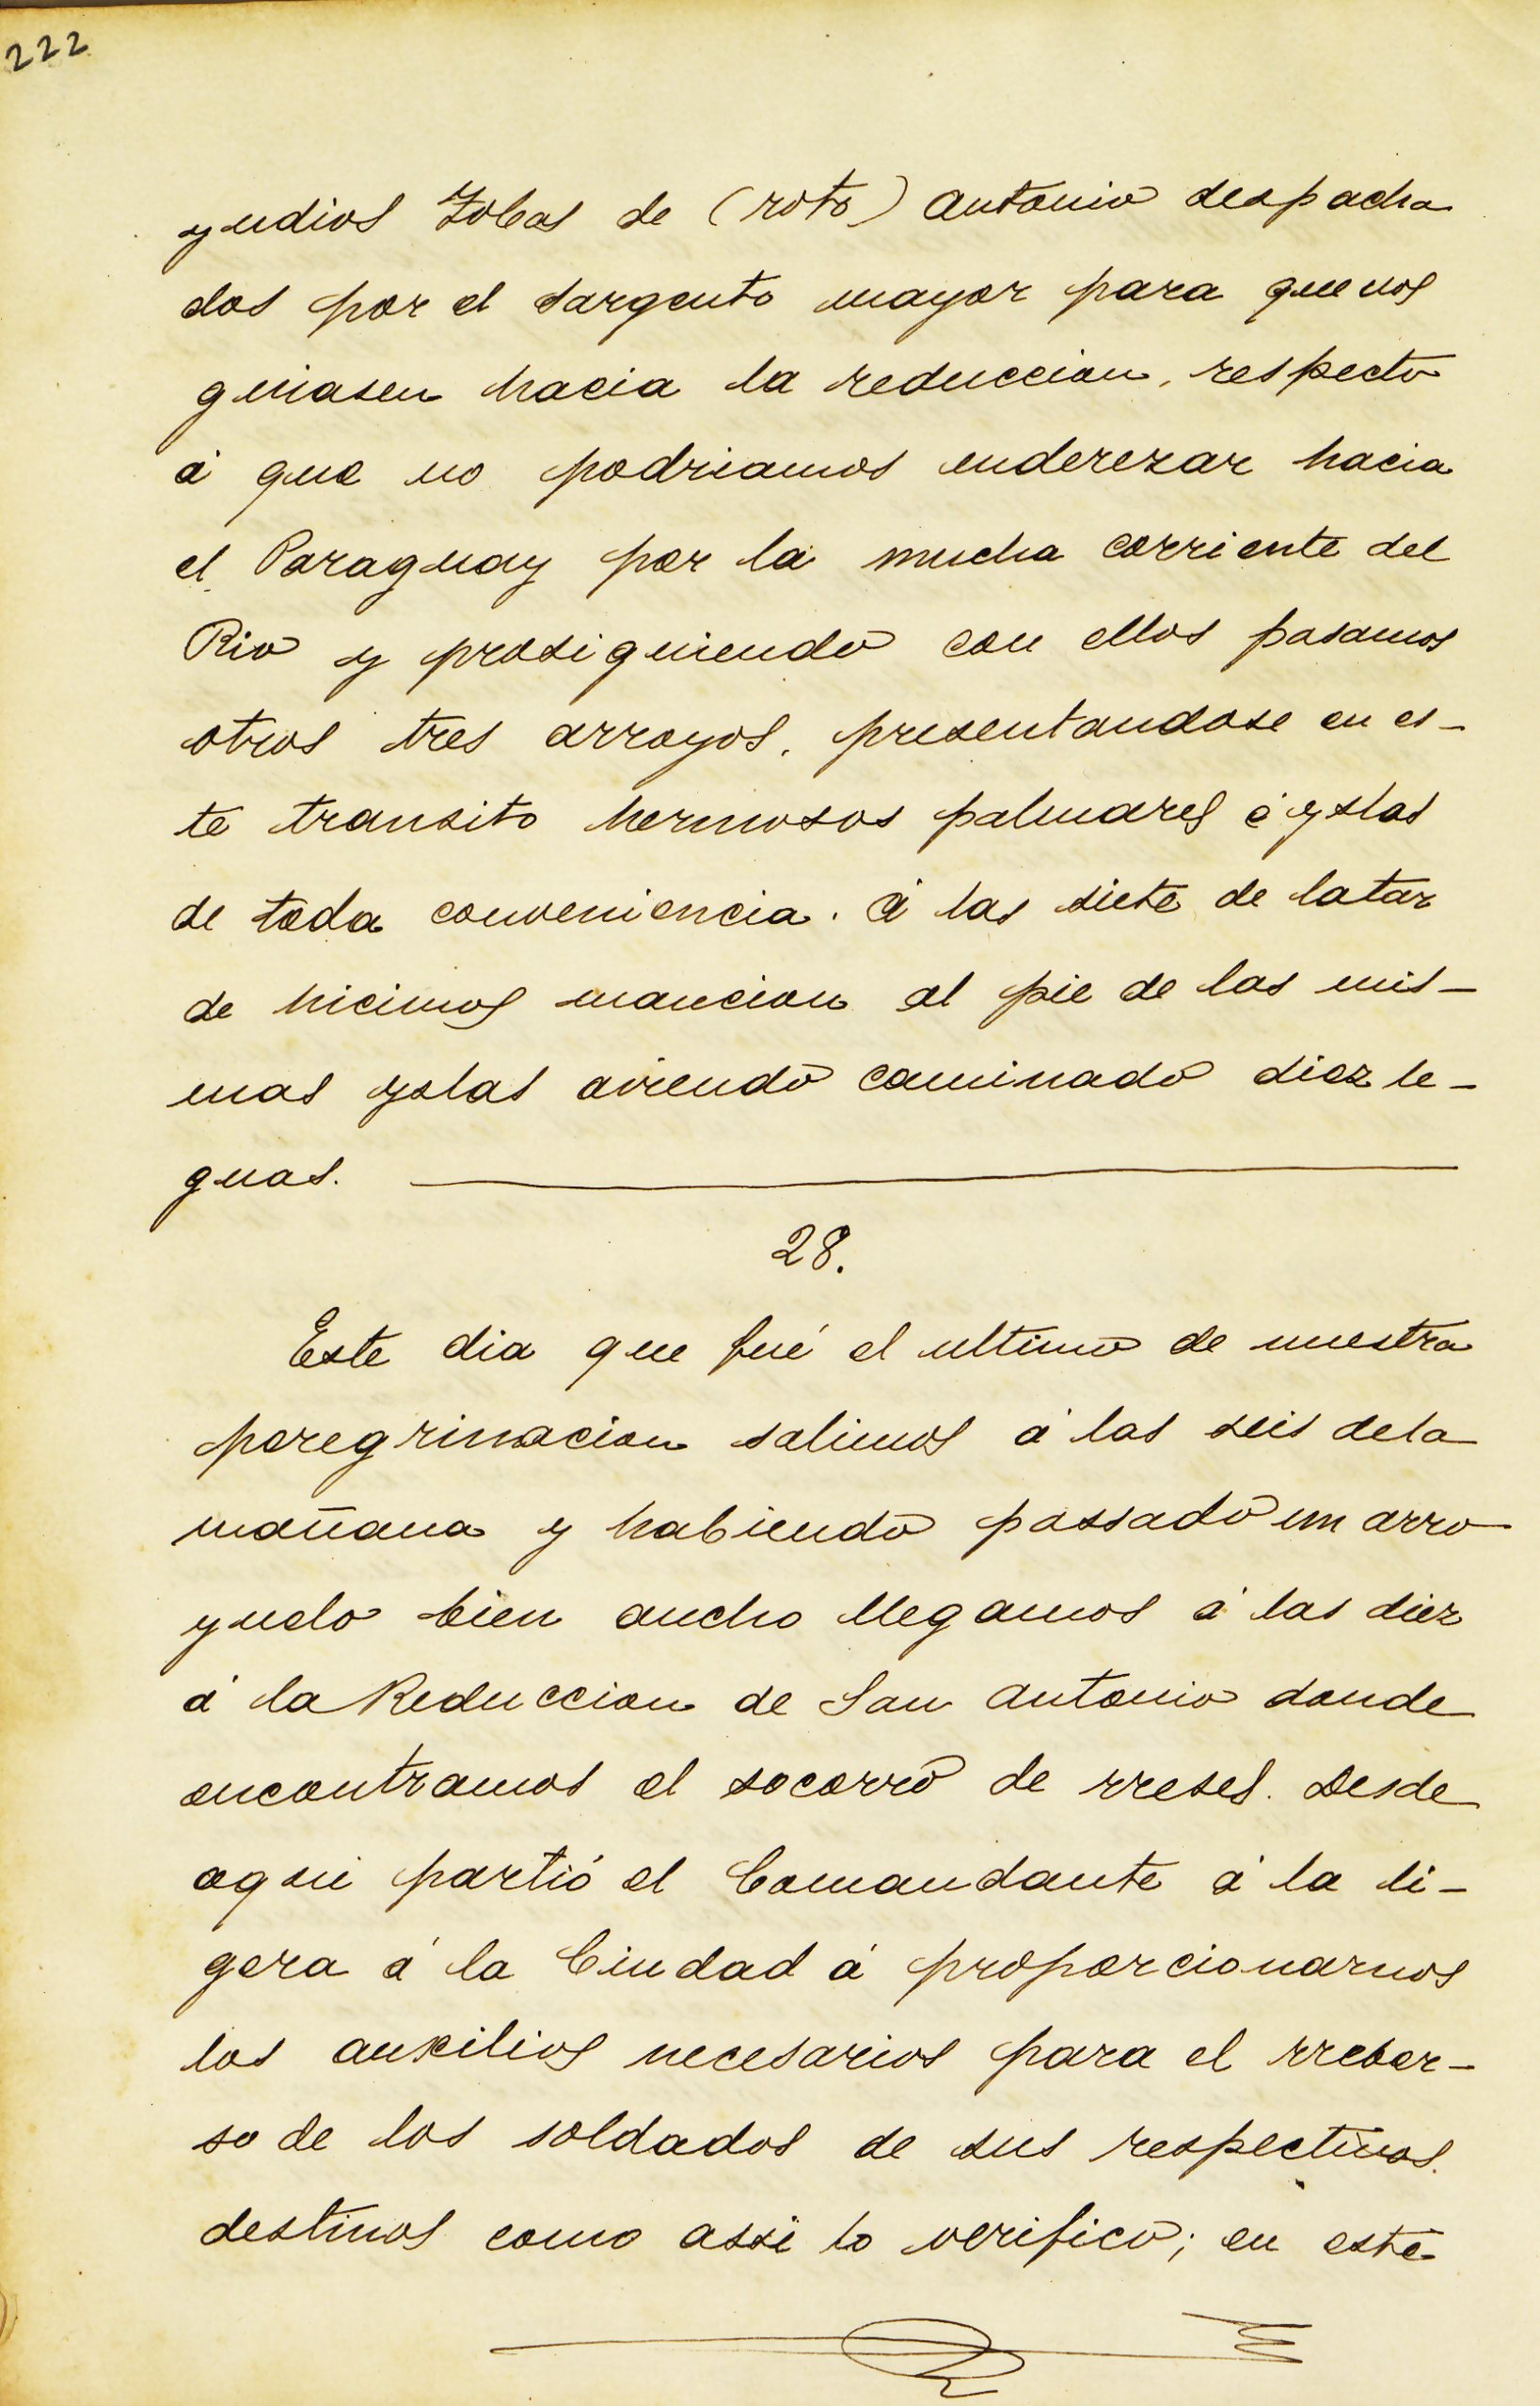 222
yudios Tobas de (roto) Antonio despacha
dos por el sargento mayor para que nos
guiasen hacia la reduccion, respecto
á que no podriamos enderezar hacia
el Paraguay por la mucha corriente del
Rio y prosiguiendo con ellos pasamos
otros tres arroyos, presentandose en es-
te transito hermosos palmares é yslas
de toda conveniencia. á las siete de latar
de hicimos mancion al pie de las mis-
mas yslas aviendo caminado diez le-
guas.
28.
Este dia que fué el ultimo de nuestra
peregrinacion salimos á las seis dela
mañana y habiendo passado un arro
yuelo bien ancho llegamos á las diez
á la Reduccion de San Antonio donde
encontramos el socorro de rreses. Desde
aqui partió el Comandante á la li-
gera á la Ciudad á proporcionarnos
los auxilios necesarios para el rreber-
so de los soldados de sus respectivos
destinos como assi lo verifico; en este